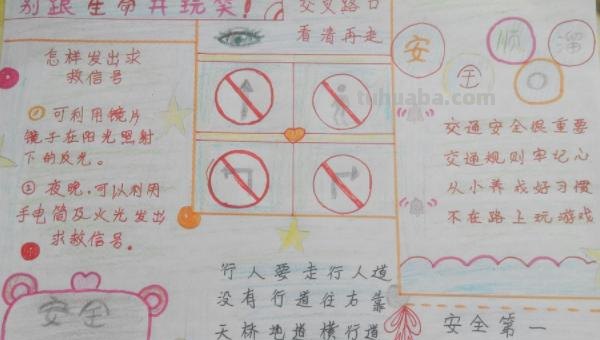 别跟生命开玩笑！
交叉路口
看清再走
怎样发出求
救信号
①可利用镜片
镜子在阳光照射
下的反光。
②夜晚，可以利用
手电筒及火光发出
求救信号。
安全
行人要走行人道
没有行道往右靠
天桥地道横行道
安
全
顺
溜
tuhuaba.com
交通安全很重要
交通规则牢记心
从小养成好习惯
不在路上玩游戏
安全第一